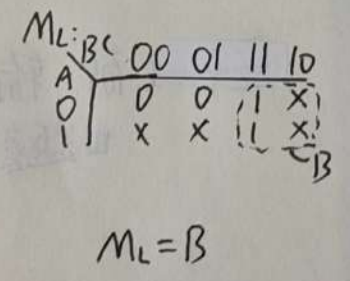 ML: BC 00 01 11 10
A
0 0 0 1 X
1 X X 1 X
B
ML = B